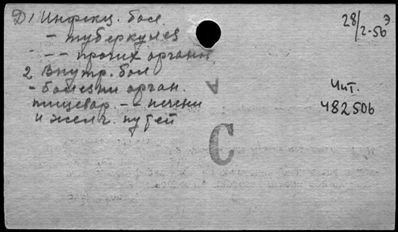 Д) 1 Инфекц. бол.
- туберкулез
- - - прочих органов
2 Внутр. бол
- болезни орган.
пищевар. - - печени
и желч. путей
28/2-56 Э
Чит.
482506
С